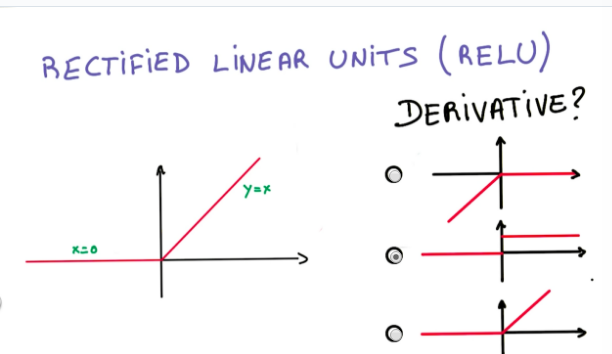 RECTIFIED LINEAR UNITS (RELU)
DERIVATIVE?
y=x
x=0